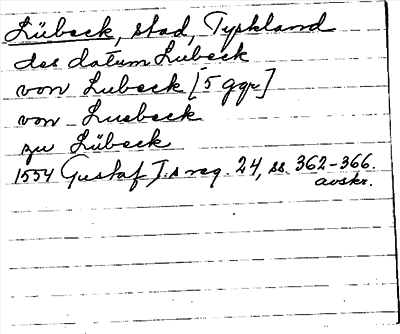 Lübeck, stad, Tyskland
des datum Lubeck
von Lubeck [5 ggr]
von Lusbeck
zu Lübeck
1554 Gustaf I:s reg. 24, ss. 362-366.
avskr.